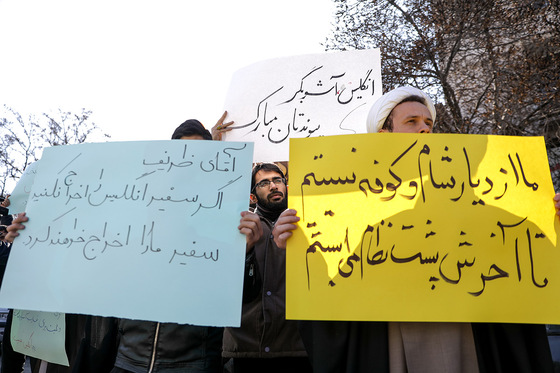 انگلیس آشوبگر
پیوندتان مبارک
آقای ظریف
اگر سفیر انگلیس را اخراج نکنید
سفیر ما را اخراج خواهند کرد
ما از دیار شام و کوفه نیستیم
تا آخرش پشت نظام می ایستیم